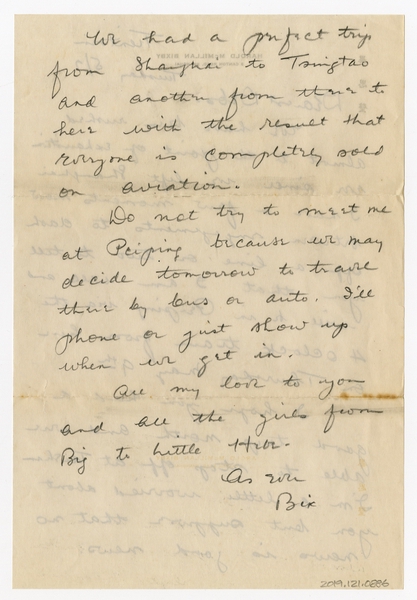 We had a perfect trip
from Shanghai to Tsingtao
and another from there to
here with the result that
everyone is completely sold
on aviation.
Do not try to meet me
at Peiping because we may
decide tomorrow to travel
their by bus or auto. I'll
phone or just show up
when we get in.
All my love to you
and all the girls from
Big to Little
As ever
Bix
2019.121.0886